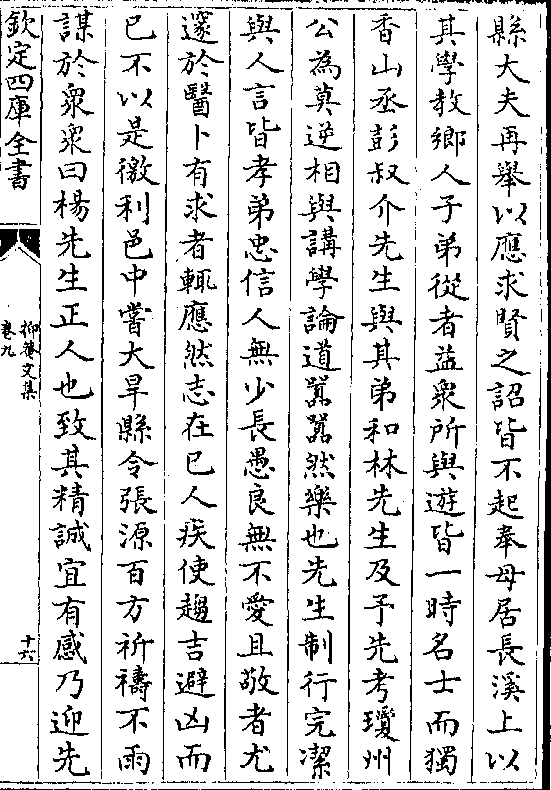 縣大夫再舉以應求賢之詔皆不起奉母居長溪上以
其學教鄉人子弟從者益衆所與遊皆一時名士而獨
香山丞彭叔介先生與其弟和林先生及予先考瓊州
公為莫逆相與講學論道囂囂然樂也先生制行完潔
與人言皆孝弟忠信人無少長愚良無不愛且敬者尤
邃於醫卜有求者輒應然志在已人疾使趨吉避凶而
已不以是徼利邑中嘗大旱縣令張源百方祈禱不雨
謀於衆衆曰楊先生正人也致其精誠宜有感乃迎先
欽定四庫全書
抑菴文集
卷九
十六